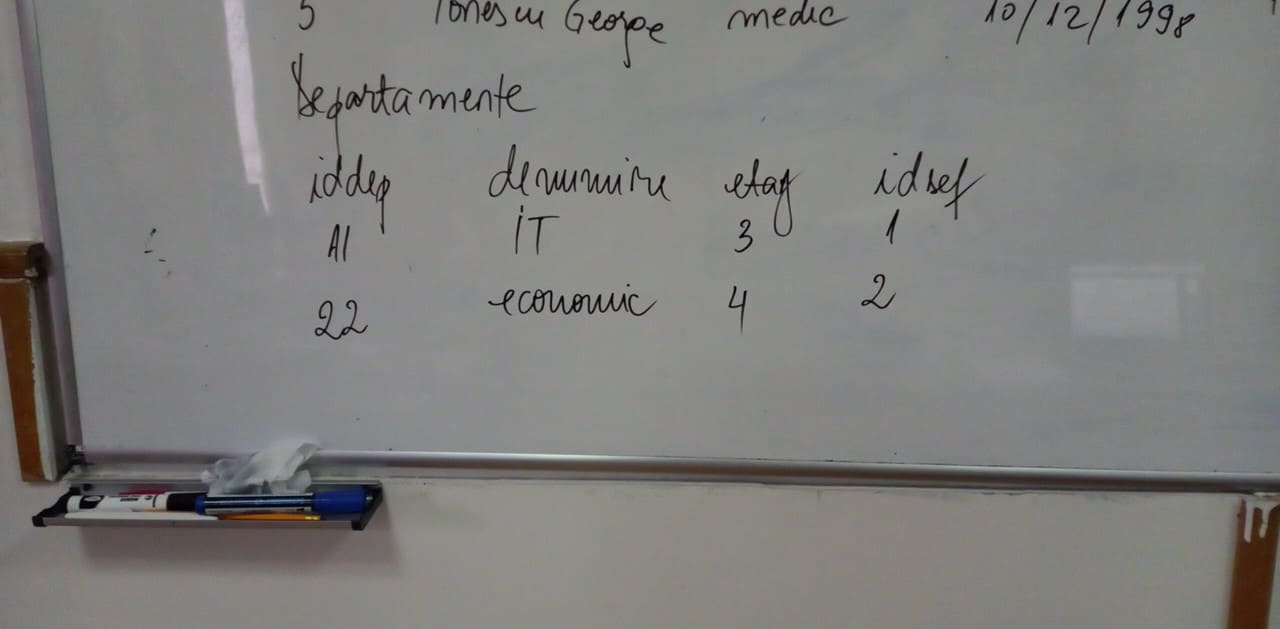 5 Ionescu George medic 10/12/1998
Departamente
iddep denumire etaj idsef
A1 IT 3 1
22 economic 4 2